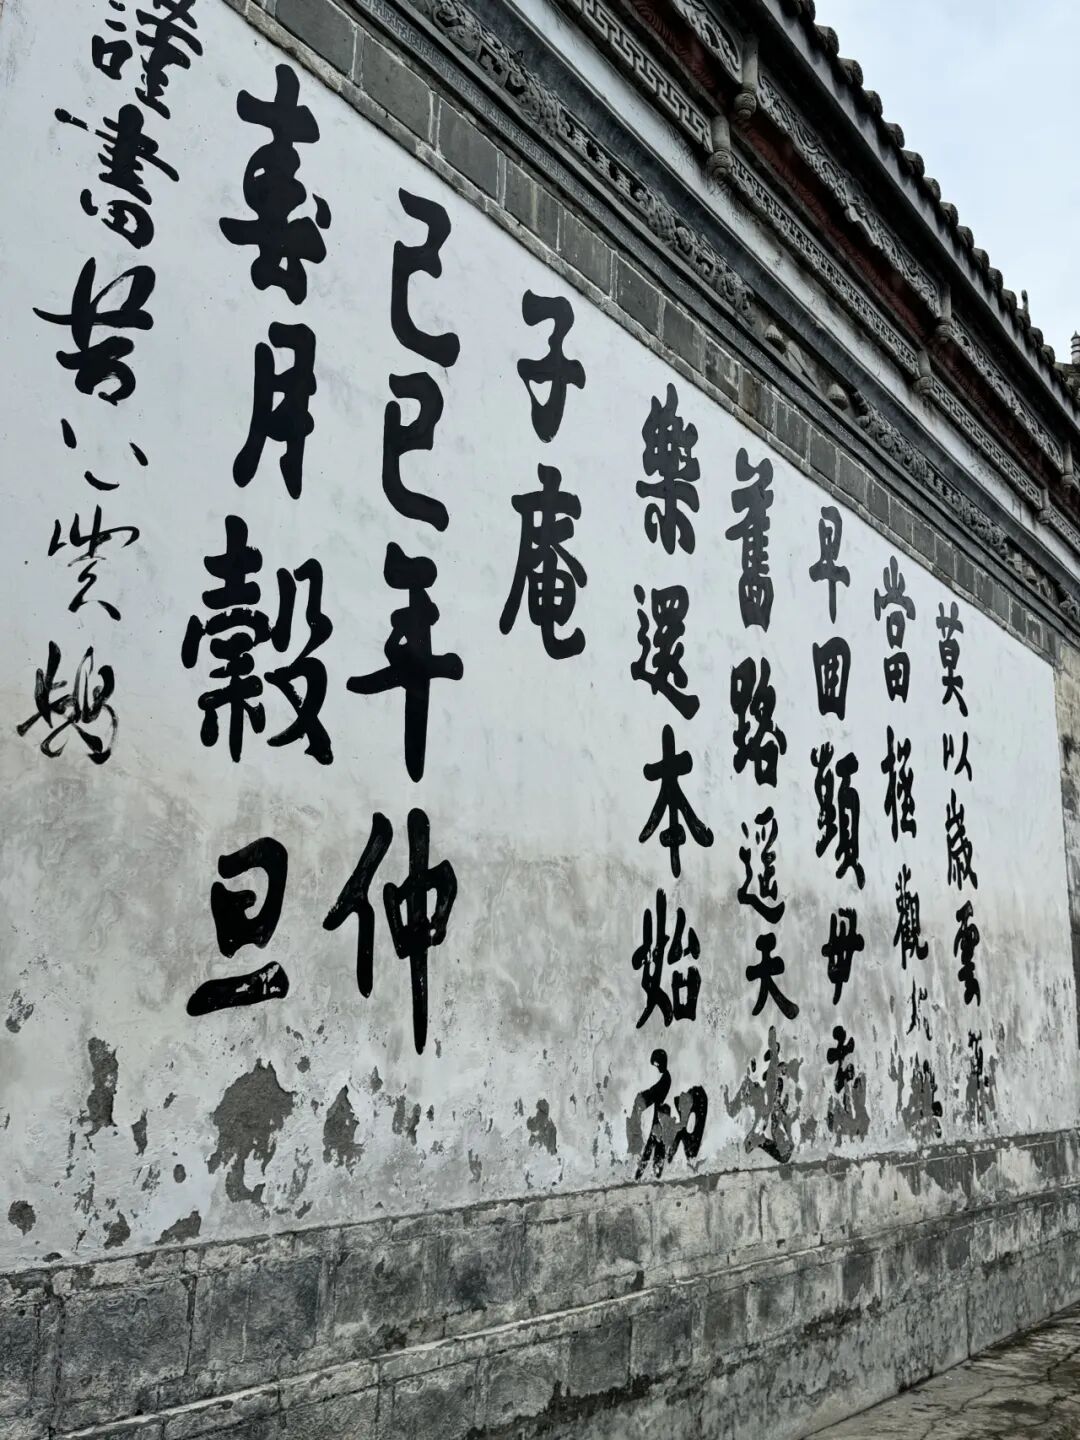 莫以歲雲
當極觀
早回顛毋
舊路遥天遠
樂還本始初
子庵
己巳年仲
春月穀旦
謹書